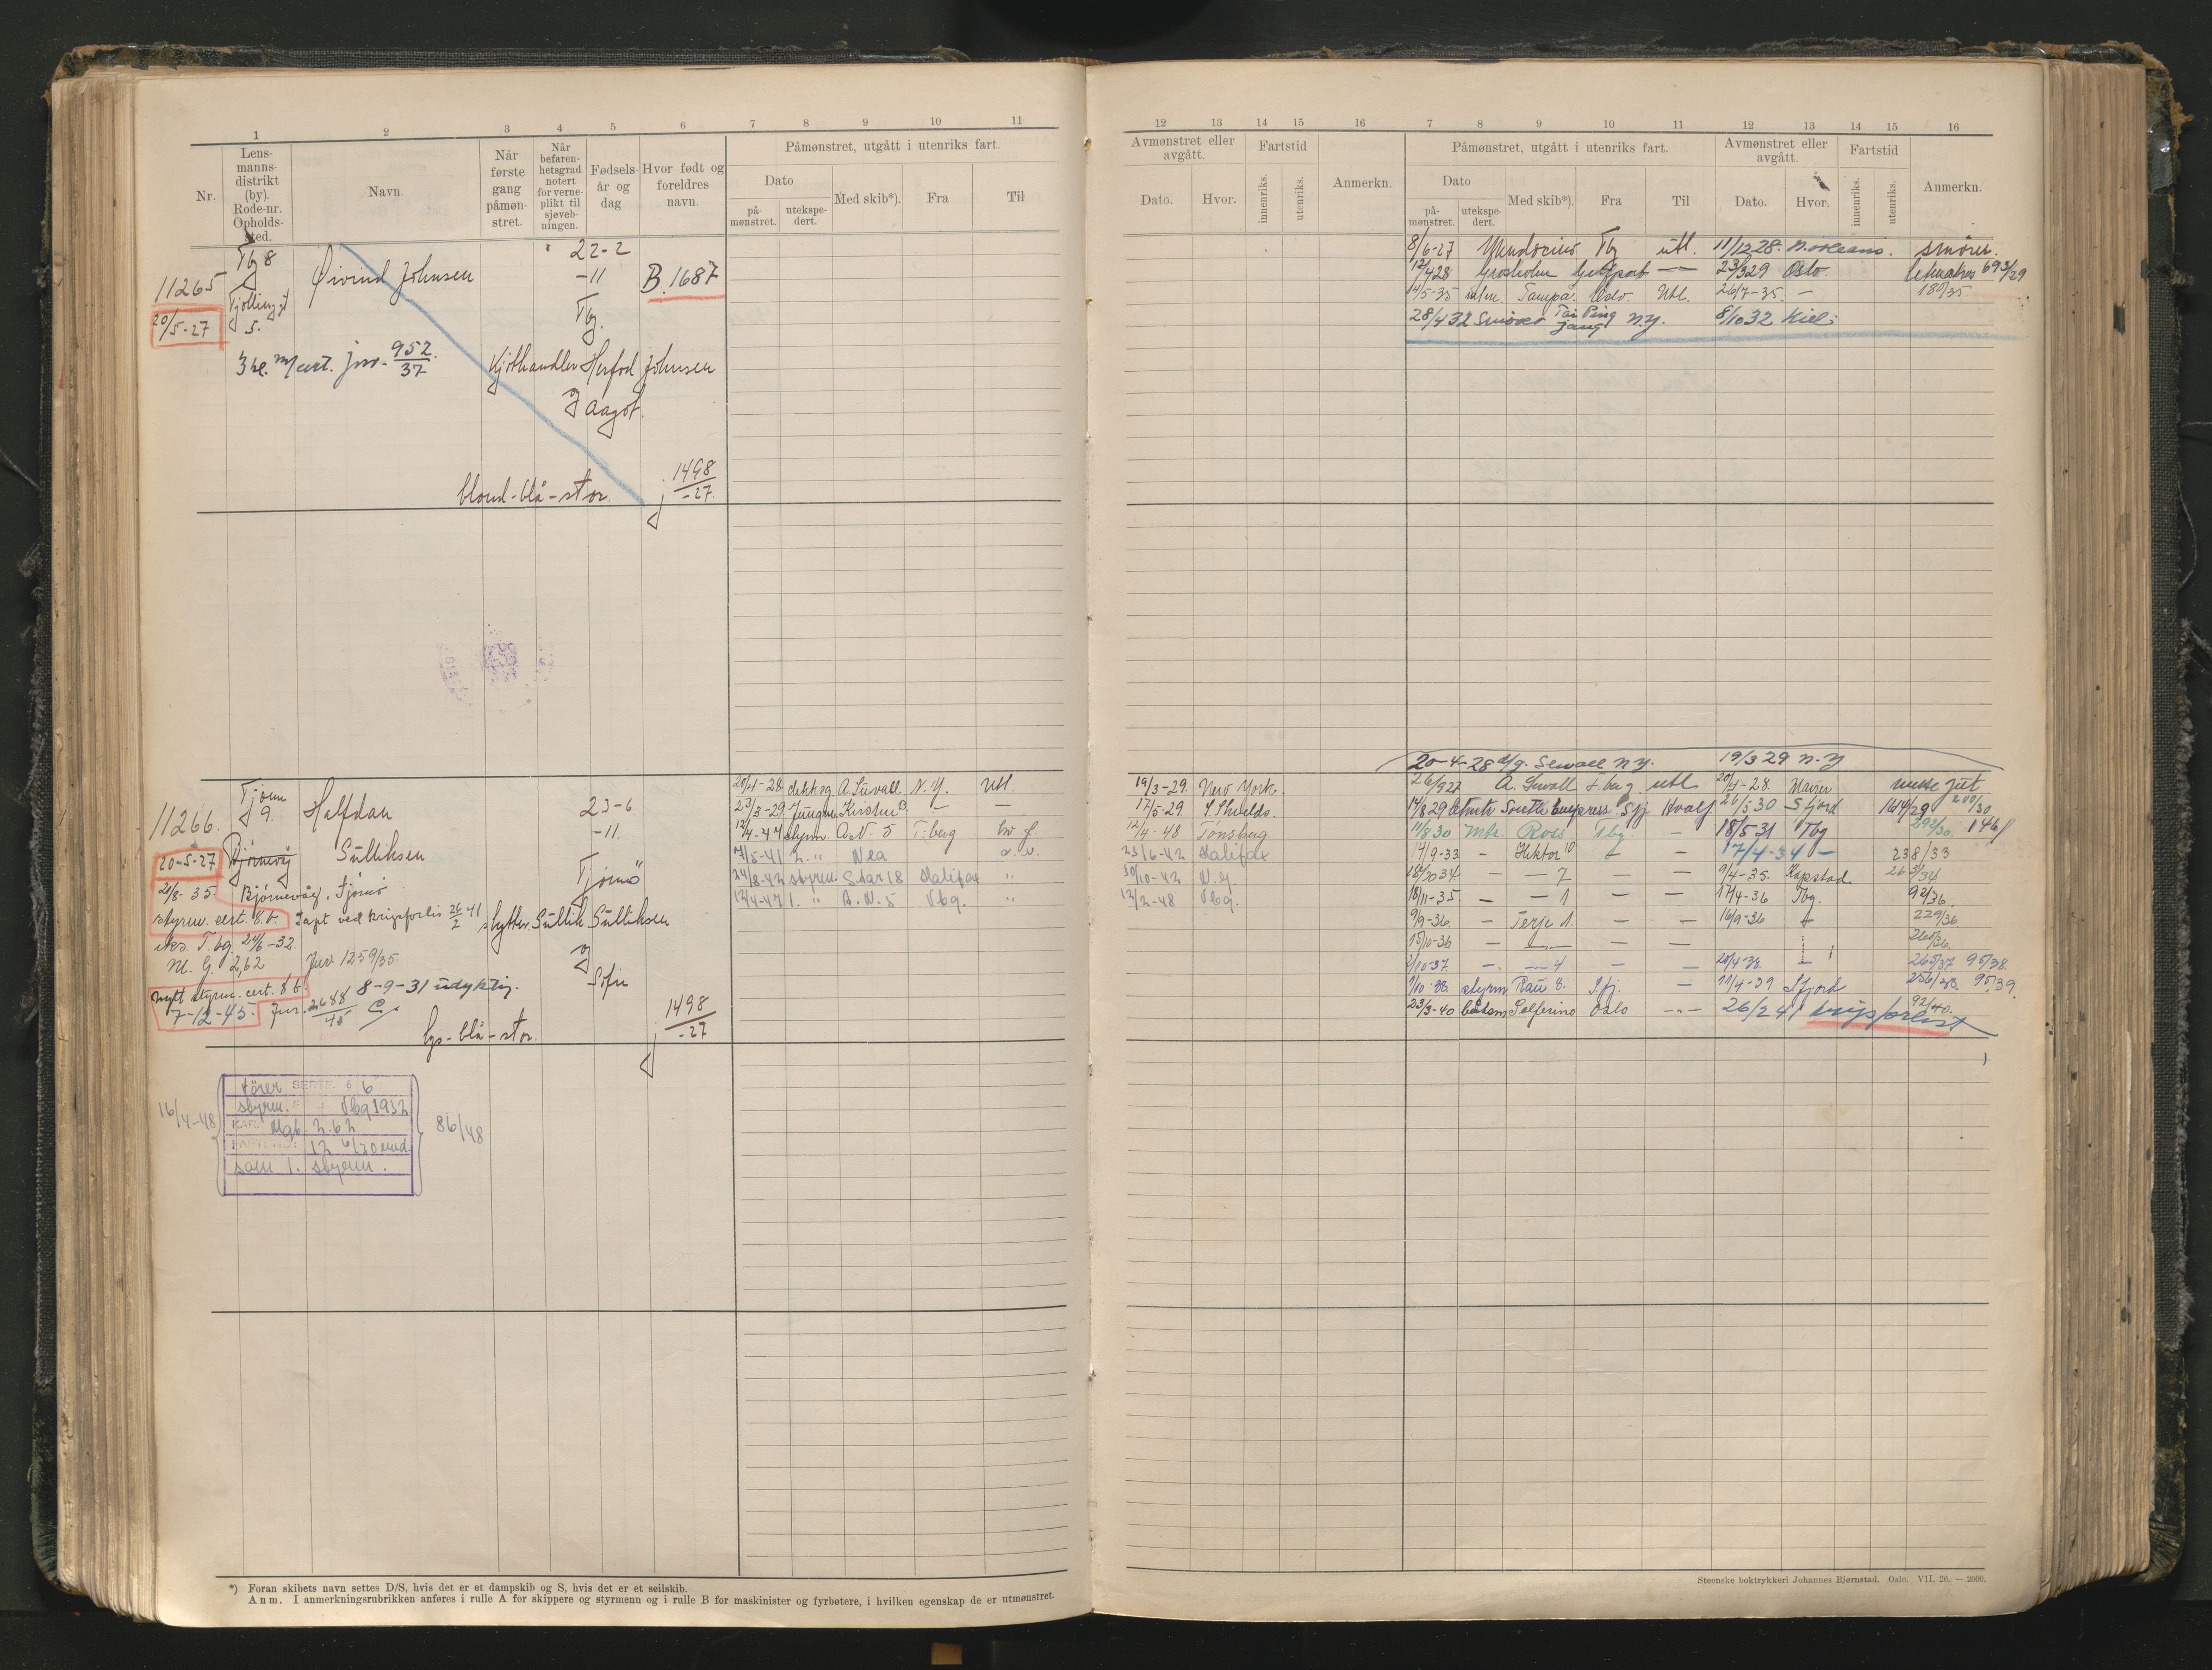 1 2 3 4 5 6 7 8 9 10 11
Nr.
Lens-
manns-
distrikt
(by).
Rode-nr.
Opholds-
sted.
Navn
Når
første
gang
påmøn-
stret.
Når
befaren-
hetsgrad
notert
for verne-
plikt til
sjøveb-
ningen.
Fødsels-
år og
dag
Hvor født og
foreldres
navn.
Påmønstret, utgått i utenriks fart.
Dato
på-
mønstret.
utekspe-
dert.
Med skib*).
Fra
Til
11265
20/5-27
Tbg 8
Tjølling
5.
Øivind Johnsen
22-2
-11
Tbg.
B.1687
3 kl. m/cert. jnr. 952/37
Kjøthandler Herfod Johnsen
Aagot.
blond-blå-stor.
j 1498/-27.
11266.
20-5-27
Tjøm
9.
Bjørnevåg
Halfdan
Sulliksen
23-6
-11.
Tjømø
21/8-35. Bjørnevåg, Tjømø
styrm. cert. 8.b. Tapt ved krigsforlis 26/2-41
skytter Sullik Sulliksen
Sofie
eks. T.bg 24/6-32.
M. G. 2,62 Jnr 1259/35
Nytt styrm. cert. 8 b. 8-9-31 udyktig.
7-12-45. Jnr. 2688/45
lys-blå-stor.
j 1498/-27
20/4-28 dekksg. A. Sewall N.Y. Utl.
23/3-29 Jungm. Kirsten B. — —
12/4-47 styrm. A.N. 5 T.berg
7/5-41 2. " Nea
24/8-42 styrm. Star 18 Halifax "
12/4-47 1. " A.N. 5 Tbg. "
16/4-48
fører SERTF. 6
styrm. Tbg 1932
KAR. Mgt. 2.62
FARTSTID: 12 6/30 mnd.
som 1. styrm.
86/48
*) Foran skibets navn settes D/S, hvis det er et dampskib og S, hvis det er et seilskib.
Anm. I anmerkningsrubrikken anføres i rulle A for skippere og styrmenn og i rulle B for maskinister og fyrbøtere, i hvilken egenskap de er utmønstret.
12 13 14 15 16 7 8 9 10 11 12 13 14 15 16
Avmønstret eller
avgått.
Dato.
Hvor.
Fartstid
innenriks.
utenriks.
Anmerkn.
Påmønstret, utgått i utenriks fart.
Dato
på-
mønstret.
utekspe-
dert.
Med skib*).
Fra
Til
Avmønstret eller
avgått.
Dato.
Hvor.
Fartstid
innenriks.
utenriks.
Anmerkn.
8/6-27 Mendocino Tbg utl. 11/12 28. N.orleans. smører.
12/4 28 Grosholm Gulfport — 23/3 29 Oslo. letmatros 693/29
11/5-35 Tampa. Oslo. Utl. 26/7-35. — 180/35
28/4 32 Smører Tai Ping Yang N.Y. 8/10 32 Kiel.
20-4-28 Sewall N.Y. 19/3 29 N.Y
26/9 27 A. Sewall T.berg utl 20/4-28.
14/8 29 South. Empress Sfj. Hvalf. 26/5 30 S fjord 1614/29 200/30
11/8 30 Mtr. Ross Tbg — 18/5 31 Tbg 292/30. 146/
14/9-33 — Hektor 10 — — 17/4-34 — 238/33
18/10 34 — — 7 — — 9/4-35. Kapstad 263/34
18/11-35. — — 1 — — 17/4-36 Tbg. 92/36.
9/9-36 — Terje 1. — — 16/9-36 229/36
15/10-36 — — — — 260/36.
2/10-37. — — 4 — — 20/4-38. 265/37 95/38.
1/10-38. styrm Rau 8. S.fj. — 11/4-39 S.fjord 256/38. 95/39.
23/3-40 båtsm Solferino Oslo — 26/2 41 krigsforlist 92/40.
19/3-29. New York.
17/5-29. S. Shields.
12/4-48 Tønsberg
23/6-42 Halifax
30/10-42 N.Y.
12/2-48 Tbg.
Steenske boktrykkeri Johannes Bjørnstad. Oslo. VII. 26. — 2000.